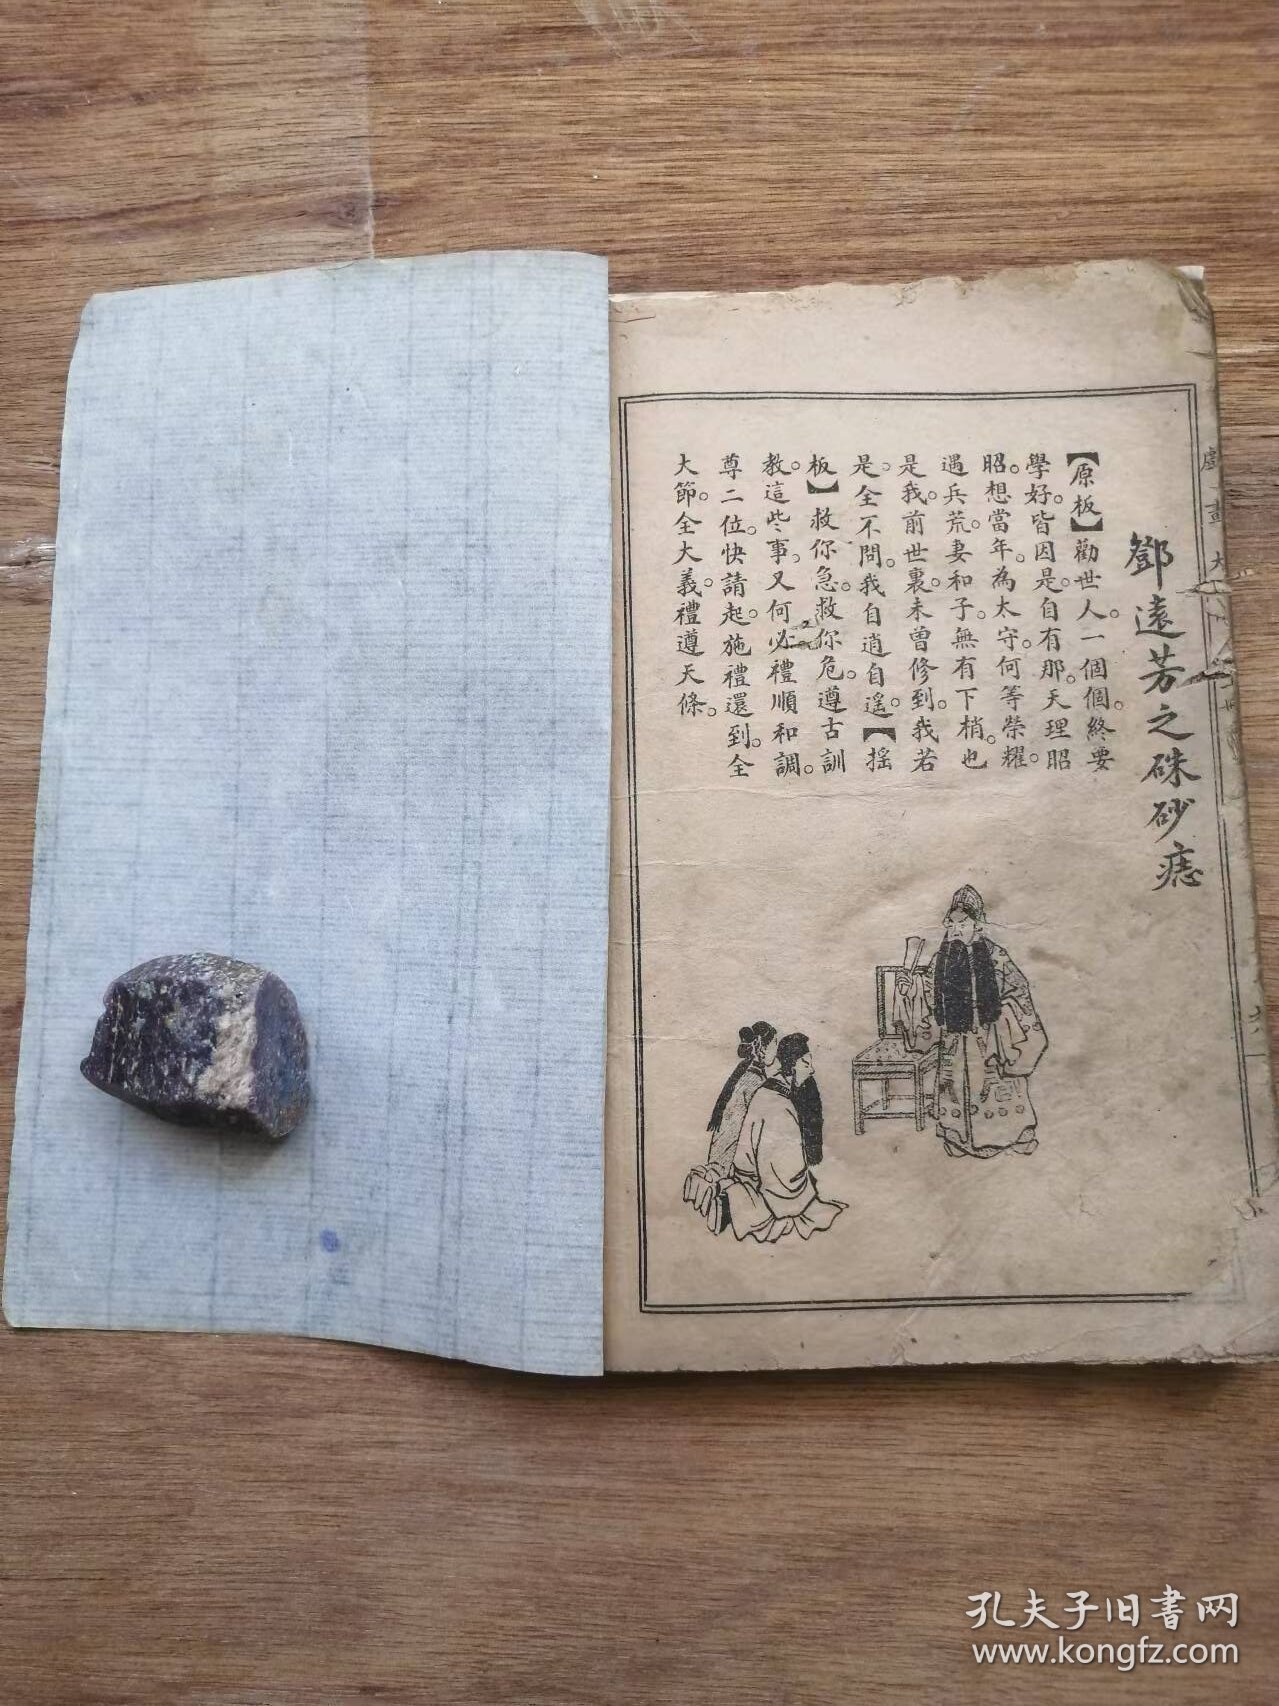 鄧遠芳之硃砂痣
【原板】勸世人。一個個。終要
學好。皆因是。自有那。天理昭
昭。想當年。為太守。何等榮耀。
遇兵荒。妻和子。無有下梢。也
是我。前世裏。未曾修到。我若
是。全不問。我自逍自遙。【搖
板】救你急。救你危。遵古訓
教。這些事。又何必禮順和調。
尊二位。快請起。施禮還到。全
大節。全大義。禮遵天條。
孔夫子旧書网
www.kongfz.com